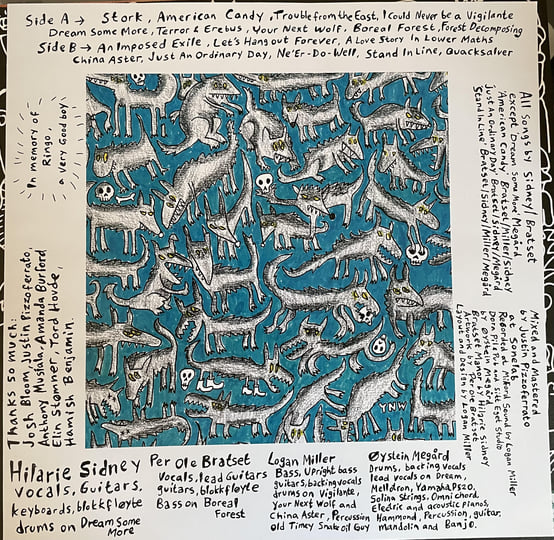 Side A → Stork, American Candy, Trouble from the East, I Could Never be a Vigilante
Dream Some More, Terror & Erebus, Your Next Wolf, Boreal Forest, Forest Decomposing
Side B → An Imposed Exile, Let's Hang out Forever, A Love Story In Lower Maths
China Aster, Just An Ordinary Day, Ne'Er-Do-Well, Stand In Line, Quacksalver
In memory of
Ringo,
a very Good boy
All songs by Sidney/Bratset
except Dream Some More Megård
'American Candy' Bratset/Miller/Sidney
'Just An Ordinary Day' Bratset/Sidney/Megård
'Stand In Line' Bratset/Sidney/Miller/Megård
Mixed and Mastered
by Justin Pizzoferrato
at Sonelab
Recorded at Clifford Sound by Logan Miller
Dropsfri Pub and Silk Eget Studio
by Øystein Megård
Bratset Manor by Hilarie Sidney
Artwork by Per Ole Bratset
Layout and Design by Logan Miller
Thanks so much:
Josh Bloom, Justin Pizzoferrato,
Anthony Musiala, Amanda Burford
Elin Stømner, Tord Hovde,
Hamish Benjamin.
YNW
Hilarie Sidney
vocals, Guitars,
keyboards, blokkfløyte
drums on Dream Some
More
Per Ole Bratset
Vocals, lead Guitars
guitars, blokkfløyte
Bass on Boreal
Forest
Logan Miller
Bass, Upright bass
guitars, backing vocals
drums on Vigilante,
Your Next Wolf and
China Aster, Percussion
old Timey Snake oil Guy
Øystein Megård
Drums, backing vocals
lead vocals on Dream,
Melldron, Yamaha PS20,
Solina Strings, Omnichord,
Electric and acoustic pianos,
Hammond, Percussion, guitar,
Mandolin and Banjo.